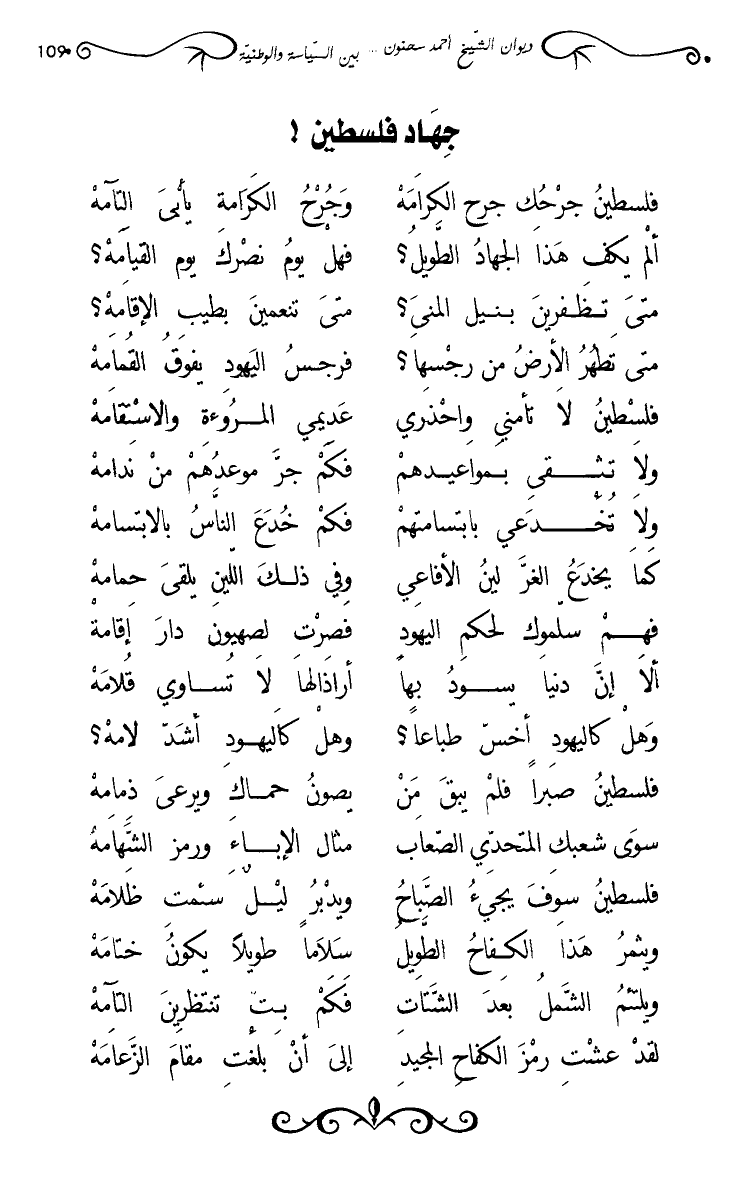 ديوان الشيخ أحمد سحنون ... بين السياسة والوطنية 109
جِهَاد فلسطين !
فلسطينُ جرْحُك جرح الكرامَهْ وَجُرْحُ الكَرَامة يأبىَ الْتآمهْ
ألمْ يكفِ هَذا الجهادُ الطَّويلُ؟ فهلْ يومُ نصْرك يوم القيامهْ؟
متىَ تـظـفرينَ بـنـيل المنىَ؟ متىَ تنعمينَ بطيب الإقامهْ؟
متى تطهُرُ الأرضُ من رجْسها؟ فرجـسُ اليَهودِ يفوقُ القُمامهْ
فلسْطينُ لا تأمني واحْذري عَديمي المـروُءة والاسْتقامهْ
ولاَ تـثـــقي بـمواعيـدهمْ فكَمْ جرَّ موعدُهُمْ منْ ندامهْ
ولاَ تُخْـــدَعي بابتسامتهمْ فكمْ خُدَعَ النَّاسُ بالابتسامهْ
كما يخدَعُ الغرَّ لينُ الأفاعي وفي ذلـكَ اللّين يلقىَ حمامهْ
فهــمْ سلّموك لحكمِ اليهودِ فصرْتِ لصهيون دارَ إقامهْ
ألاَ إنَّ دنيا يســودُ بها أراذالها لاَ تُســاوي قُلامَهْ
وَهلْ كاليهودِ أخسّ طباعاً؟ وهلْ كاليهـودِ أشدّ لامهْ؟
فلسطينُ صبراً فلمْ يبقَ مَنْ يصونُ حمـاكِ ويرعىَ ذمامهْ
سوىَ شعبك المتحدّي الصّعاب مثال الإبـاءِ ورمز الشَّهامهْ
فلسطينُ سوفَ يجيءُ الصَّباحُ ويدْبرُ ليْـل سئمت ظلامَهْ
ويثمرُ هَذا الكـفاحُ الطّويل سَلاماً طويلاً يكونُ ختامَهْ
ويلتئمُ الشَّملُ بعدَ الشَّتَاتِ فَكمْ بـتِّ تنتظرينَ الْتآمهْ
لقدْ عشْتِ رمْزَ الكفاحِ المجيدِ إلىَ أنْ بلغتِ مقامَ الزَّعامَهْ